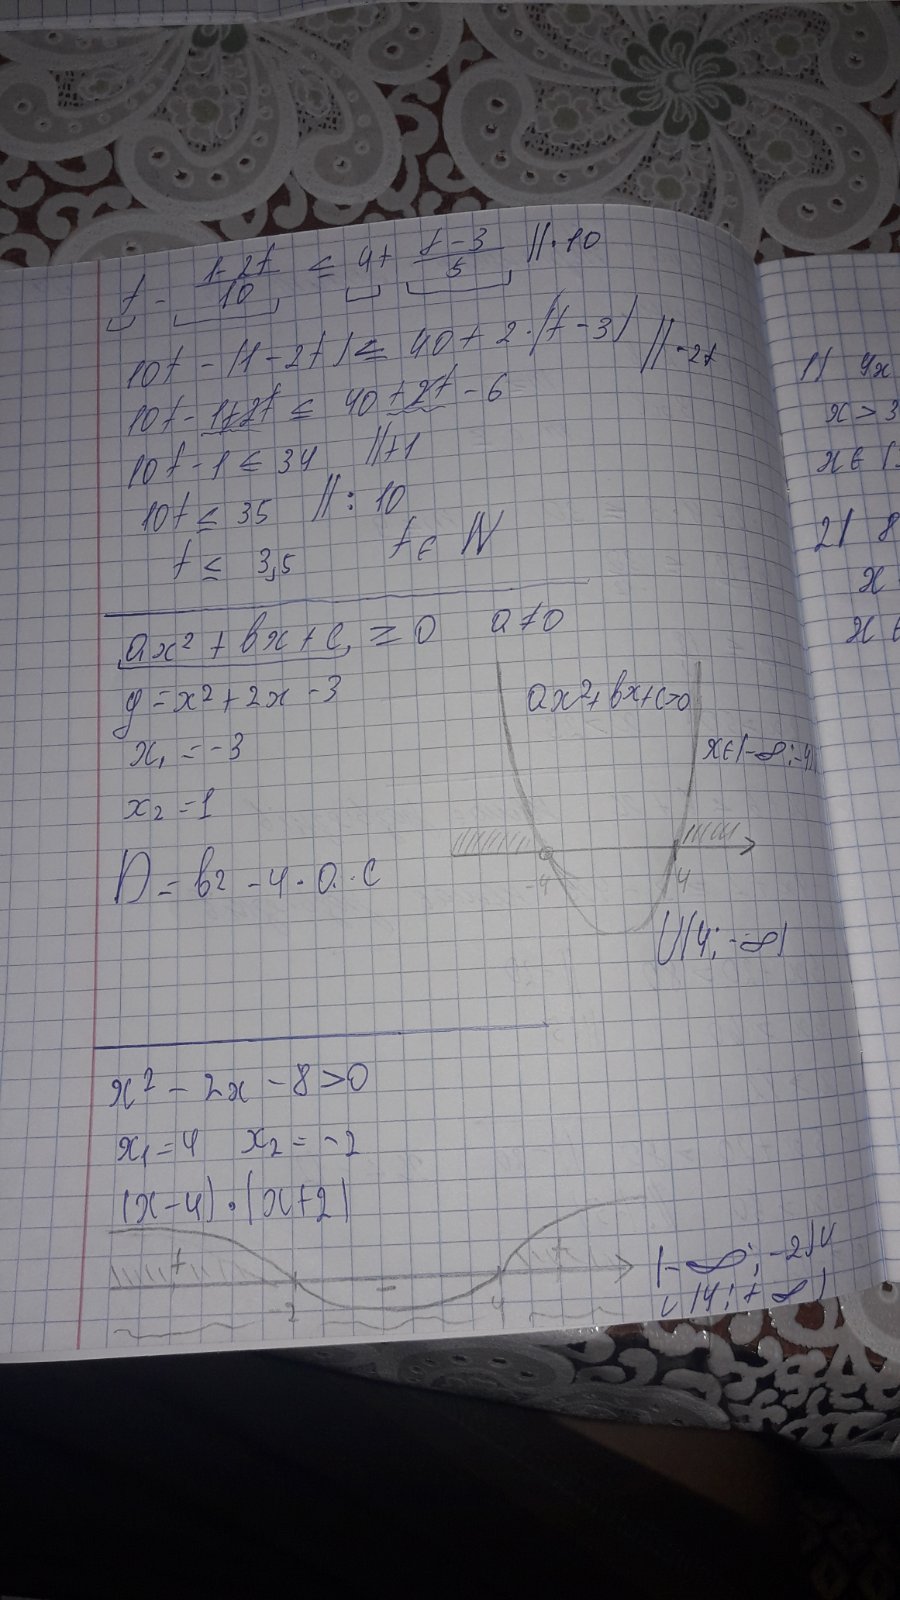 t - \frac{1-2t}{10} ≤ 4+ \frac{t-3}{5} ||·10
10t - (1-2t) ≤ 40+2·(t-3) ||-2t
10t - 1+2t ≤ 40 +2t - 6
10t - 1 ≤ 34 ||+1
10t ≤ 35 ||: 10
t ≤ 3,5 t ∈ N
ax² + bx + c ≥ 0 a≠0
y = x² + 2x - 3
x₁ = -3
x₂ = 1
D = b² - 4·a·c
ax²+bx+c>0
x∈(-∞;-4)
-4 4
U(4;-∞)
x² - 2x - 8 > 0
x₁ = 4 x₂ = -2
(x-4)·(x+2)
+ - +
-2 4
(-∞;-2)U
U(4;+∞)
1) 4x
x > 3
x ∈ (
2) 8
x
x ∈